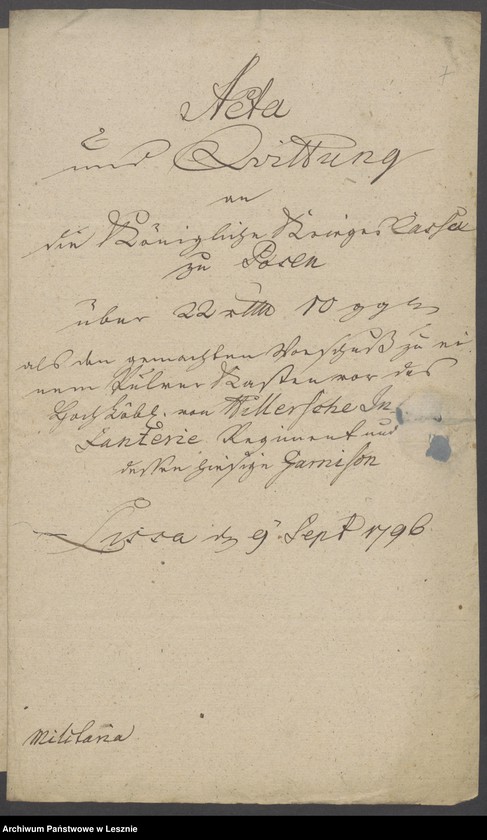 Acta
und Qvittung
an
die Königliche Krieges Casse
zu Posen
über 22 rthl 10 ggr
als den gemachten Vorschuß zu ei
nem Pulver Kasten vor des
Hoch Löbl. von In
fanterie Regiment und
dessen hiesige Garnison
Lissa d 9 Sept 1796
Militaria
Archiwum Państwowe w Lesznie